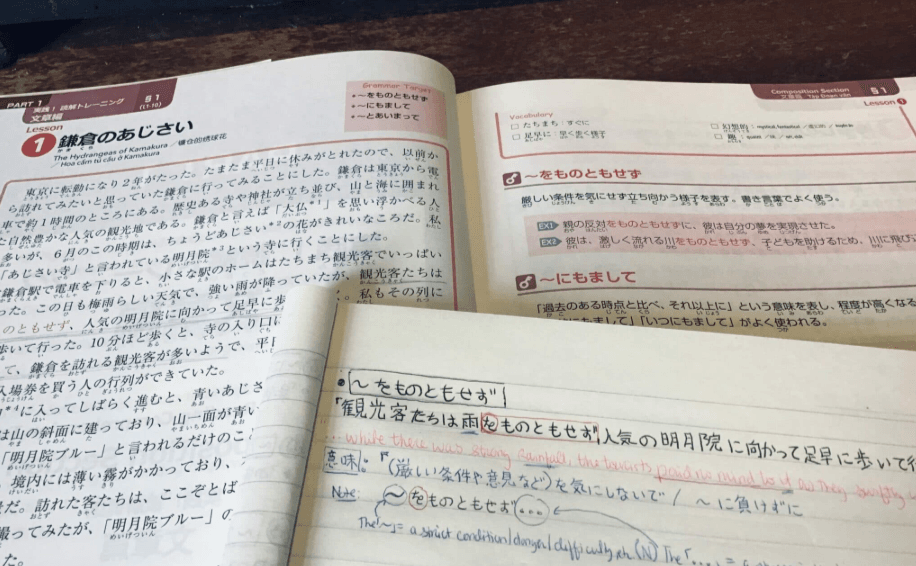 PART 1
実践! 読解トレーニング
文章編
§1
(L1-10)
Grammar Target
•～をものともせず
•～にもまして
•～とあいまって
Lesson
1 鎌倉のあじさい
The Hydrangeas of Kamakura
Hoa cẩm tú cầu ở Kamakura
東京に転勤になり2年がたった。たまたま平日に休みがとれたので、以前か
ら訪れてみたいと思っていた鎌倉に行ってみることにした。鎌倉は東京から電
車で約1時間のところにある。歴史ある寺や神社が立ち並び、山と海に囲まれ
自然豊かな人気の観光地である。鎌倉と言えば「大仏*1」を思い浮かべる人
多いが、6月のこの時期は、ちょうどあじさい*2の花がきれいなころだ。私
「あじさい寺」と言われている明月院*3という寺に行くことにした。
鎌倉駅で電車を下りると、小さな駅のホームはたちまち観光客でいっぱい
った。この日も梅雨らしい天気で、強い雨が降っていたが、観光客たちは
のともせず、人気の明月院に向かって足早に歩
。私もその列に
歩いて行った。10分ほど歩くと、寺の入り口に
て、鎌倉を訪れる観光客が多いようで、平日
入場券を買う人の行列ができていた。
*4に入ってしばらく進むと、青いあじさ
は山の斜面に建っており、山一面が青い
「明月院ブルー」と言われるだけのこ
境内には薄い霧がかかっており、
だ。訪れた客たちは、ここぞとば
撮ってみたが、「明月院ブルー」の
た。
Composition Section
§1
Lesson 1
Vocabulary
□ たちまち：すぐに
□ 足早に：早く歩く様子
□ 幻想的：
□ 趣：
～をものともせず
厳しい条件を気にせず立ち向かう様子を表す。書き言葉でよく使う。
EX1 親の反対をものともせずに、彼は自分の夢を実現させた。
EX2 彼は、激しく流れる川をものともせず、子どもを助けるため、川に飛び
～にもまして
「過去のある時点と比べ、それ以上に」という意味を表し、程度が高くなる
にもまして」「いつにもまして」がよく使われる。
• ～をものともせず
「観光客たちは雨をものともせず人気の明月院に向かって足早に歩いて行
... while there was strong rainfall, the tourists paid no mind to it as they
意味：『(厳しい条件や意見など)を気にしないで / ～に負けずに
Note: ～をものともせず ...
The「～」= a strict condition/danger/difficulty etc (N) The「....」=